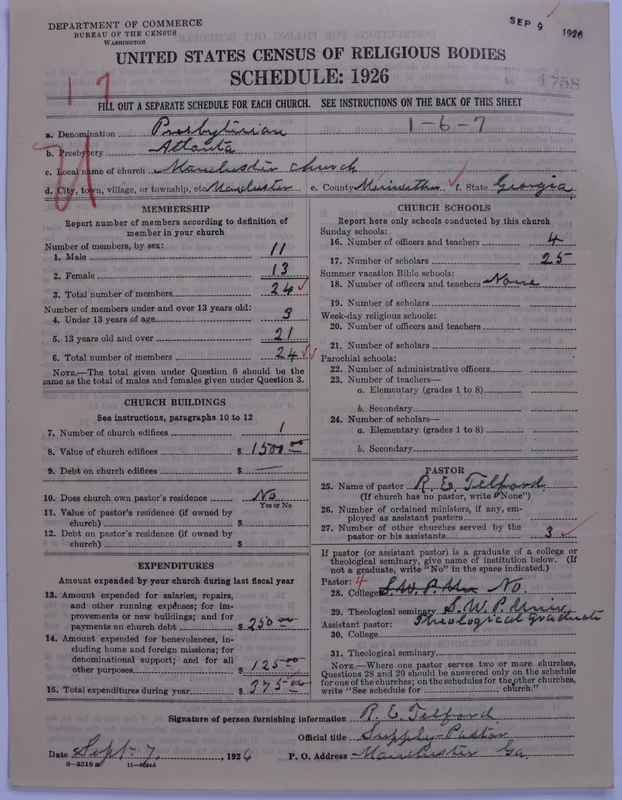 DEPARTMENT OF COMMERCE
BUREAU OF THE CENSUS
WASHINGTON
SEP 9 1926
UNITED STATES CENSUS OF RELIGIOUS BODIES
SCHEDULE: 1926
1758
17
FILL OUT A SEPARATE SCHEDULE FOR EACH CHURCH. SEE INSTRUCTIONS ON THE BACK OF THIS SHEET
a. Denomination Presbyterian 1-6-7
b. Presbytery Atlanta
c. Local name of church Manchester church
d. City, town, village, or township, etc Manchester e. County Meriwether f. State Georgia
MEMBERSHIP
Report number of members according to definition of
member in your church
Number of members, by sex:
1. Male 11
2. Female 13
3. Total number of members 24
Number of members under and over 13 years old:
4. Under 13 years of age 3
5. 13 years old and over 21
6. Total number of members 24
NOTE.—The total given under Question 6 should be
same as the total of males and females given under Question 3.
CHURCH BUILDINGS
See instructions, paragraphs 10 to 12
7. Number of church edifices 1
8. Value of church edifices $ 1500 00
9. Debt on church edifices $ —
10. Does church own pastor's residence No
Yes or No
11. Value of pastor's residence (if owned by
church) $
12. Debt on pastor's residence (if owned by
church) $
EXPENDITURES
Amount expended by your church during last fiscal year
13. Amount expended for salaries, repairs,
and other running expenses; for im-
provements or new buildings; and for
payments on church debt $ 250 00
14. Amount expended for benevolences, in-
cluding home and foreign missions; for
denominational support; and for all
other purposes $ 125 00
15. Total expenditures during year $ 375 00
CHURCH SCHOOLS
Report here only schools conducted by this church
Sunday schools:
16. Number of officers and teachers 4
17. Number of scholars 25
Summer vacation Bible schools:
18. Number of officers and teachers None
19. Number of scholars
Week-day religious schools:
20. Number of officers and teachers
21. Number of scholars
Parochial schools:
22. Number of administrative officers
23. Number of teachers—
a. Elementary (grades 1 to 8)
b. Secondary
24. Number of scholars—
a. Elementary (grades 1 to 8)
b. Secondary
PASTOR
25. Name of pastor R. E. Telford
(If church has no pastor, write "None")
26. Number of ordained ministers, if any, em-
ployed as assistant pastors
27. Number of other churches served by the
pastor or his assistants 3
If pastor (or assistant pastor) is a graduate of a college or
theological seminary, give name of institution below. (If
not a graduate, write "No" in the space indicated.)
Pastor: 4
28. College S.W.P. Uni No.
29. Theological seminary S. W. P. Univ.
Theological graduate
Assistant pastor:
30. College
31. Theological seminary
NOTE.—Where one pastor serves two or more churches,
Questions 28 and 29 should be answered only on the schedule
for one of the churches; on the schedules for the other churches,
write "See schedule for church."
Signature of person furnishing information R. E. Telford
Official title Supply-Pastor
Date Sept. 7, 1926 P. O. Address Manchester Ga
8—5518 a